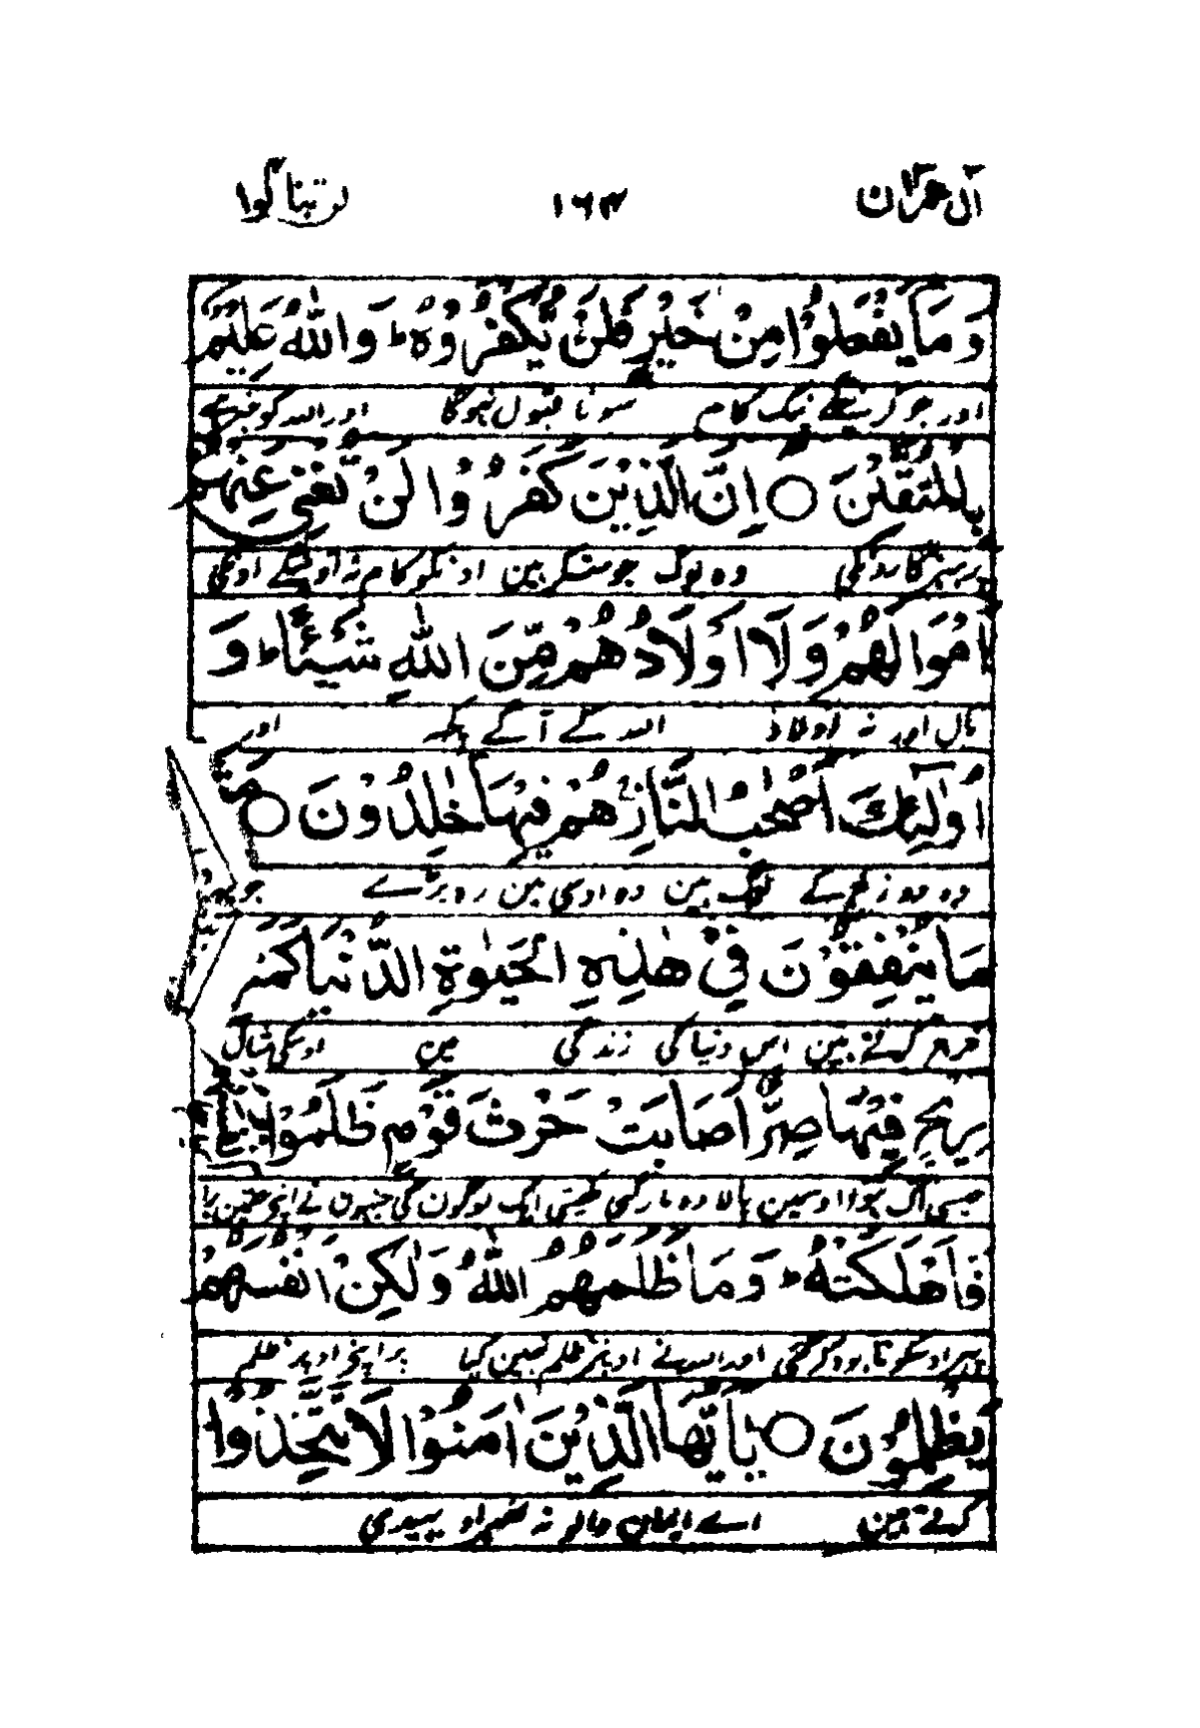 آل عمران ۱۶۴ لن تنالوا
وَمَا يَفْعَلُوْا مِنْ خَيْرٍ فَلَنْ يُّكْفَرُوْهُ ؕ وَاللّٰهُ عَلِيْمٌ
اور جو کرینگے نیک کام سو نا قبول نہوگا اور اللہ کو خبر ہے
بِالْمُتَّقِيْنَ ○ اِنَّ الَّذِيْنَ كَفَرُوْا لَنْ تُغْنِيَ عَنْهُمْ
پرہیزگارونکی وہ لوگ جو منکر ہین اونکو کام نہ آوینگے اونکی
اَمْوَالُهُمْ وَلَا اَوْلَادُهُمْ مِّنَ اللّٰهِ شَيْئًا ؕ وَ
مال اور نہ اولاد اللہ کے آگے کچھ اور
اُولٰٓئِكَ اَصْحٰبُ النَّارِ ۚ هُمْ فِيْهَا خٰلِدُوْنَ ○ مَثَلُ
وہ دوزخ کے لوگ ہین وہ اوسی مین رہ پڑے جو
مَا يُنْفِقُوْنَ فِيْ هٰذِهِ الْحَيٰوةِ الدُّنْيَا كَمَثَلِ
خرچ کرتے ہین اس دنیا کی زندگی مین اوسکی مثال
رِيْحٍ فِيْهَا صِرٌّ اَصَابَتْ حَرْثَ قَوْمٍ ظَلَمُوْا
جیسی ایک ہوا اوسمین پالا وہ مار گئی کھیتی ایک لوگون کی جنہون نے اپنے حق مین برا
فَاَهْلَكَتْهُ ؕ وَمَا ظَلَمَهُمُ اللّٰهُ وَلٰكِنْ اَنْفُسَهُمْ
پہر اوسکو نابود کر گئی اور اللہ نے اونپر ظلم نہین کیا پر اپنے اوپر ظلم
يَظْلِمُوْنَ ○ يٰاَيُّهَا الَّذِيْنَ اٰمَنُوْا لَا تَتَّخِذُوْا
کرتے ہین اے ایمان والو نہ ٹھہراو بھیدی